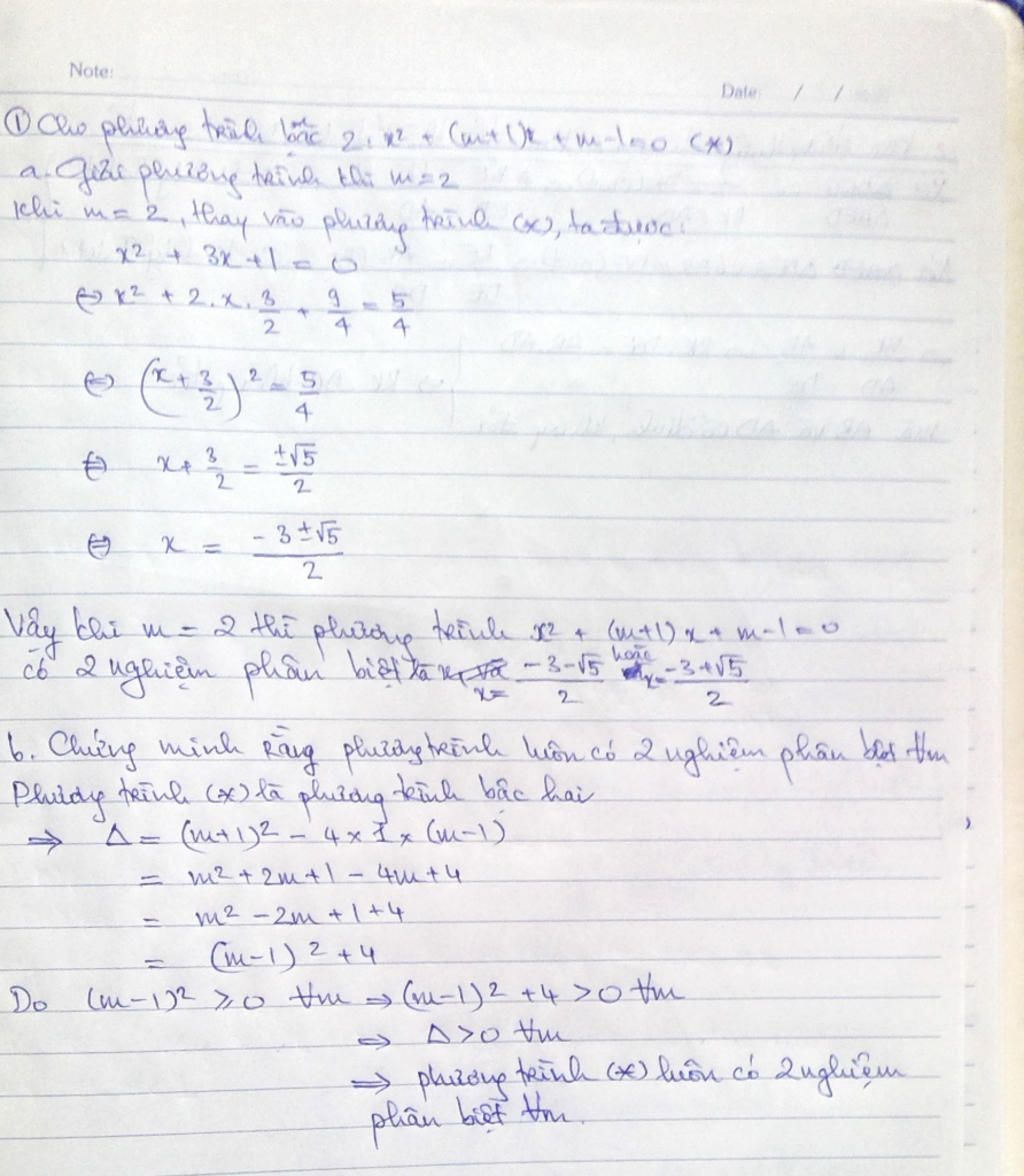 Note:
Date: / /
① Cho phương trình bậc 2: x² + (m+1)x + m-1=0 (*)
a. Giải phương trình khi m=2
Khi m = 2, thay vào phương trình (*), ta được:
x² + 3x + 1 = 0
⇔ x² + 2.x.3/2 + 9/4 = 5/4
⇔ (x + 3/2)² = 5/4
⇔ x + 3/2 = ±√5/2
⇔ x = (-3 ± √5)/2
Vậy khi m = 2 thì phương trình x² + (m+1)x + m-1=0
có 2 nghiệm phân biệt là x = (-3-√5)/2 hoặc x = (-3+√5)/2
b. Chứng minh rằng phương trình luôn có 2 nghiệm phân biệt ∀m
Phương trình (*) là phương trình bậc hai
⇒ Δ = (m+1)² - 4 × 1 × (m-1)
= m² + 2m + 1 - 4m + 4
= m² - 2m + 1 + 4
= (m-1)² + 4
Do (m-1)² ≥ 0 ∀m ⇒ (m-1)² + 4 > 0 ∀m
⇒ Δ > 0 ∀m
⇒ phương trình (*) luôn có 2 nghiệm
phân biệt ∀m.